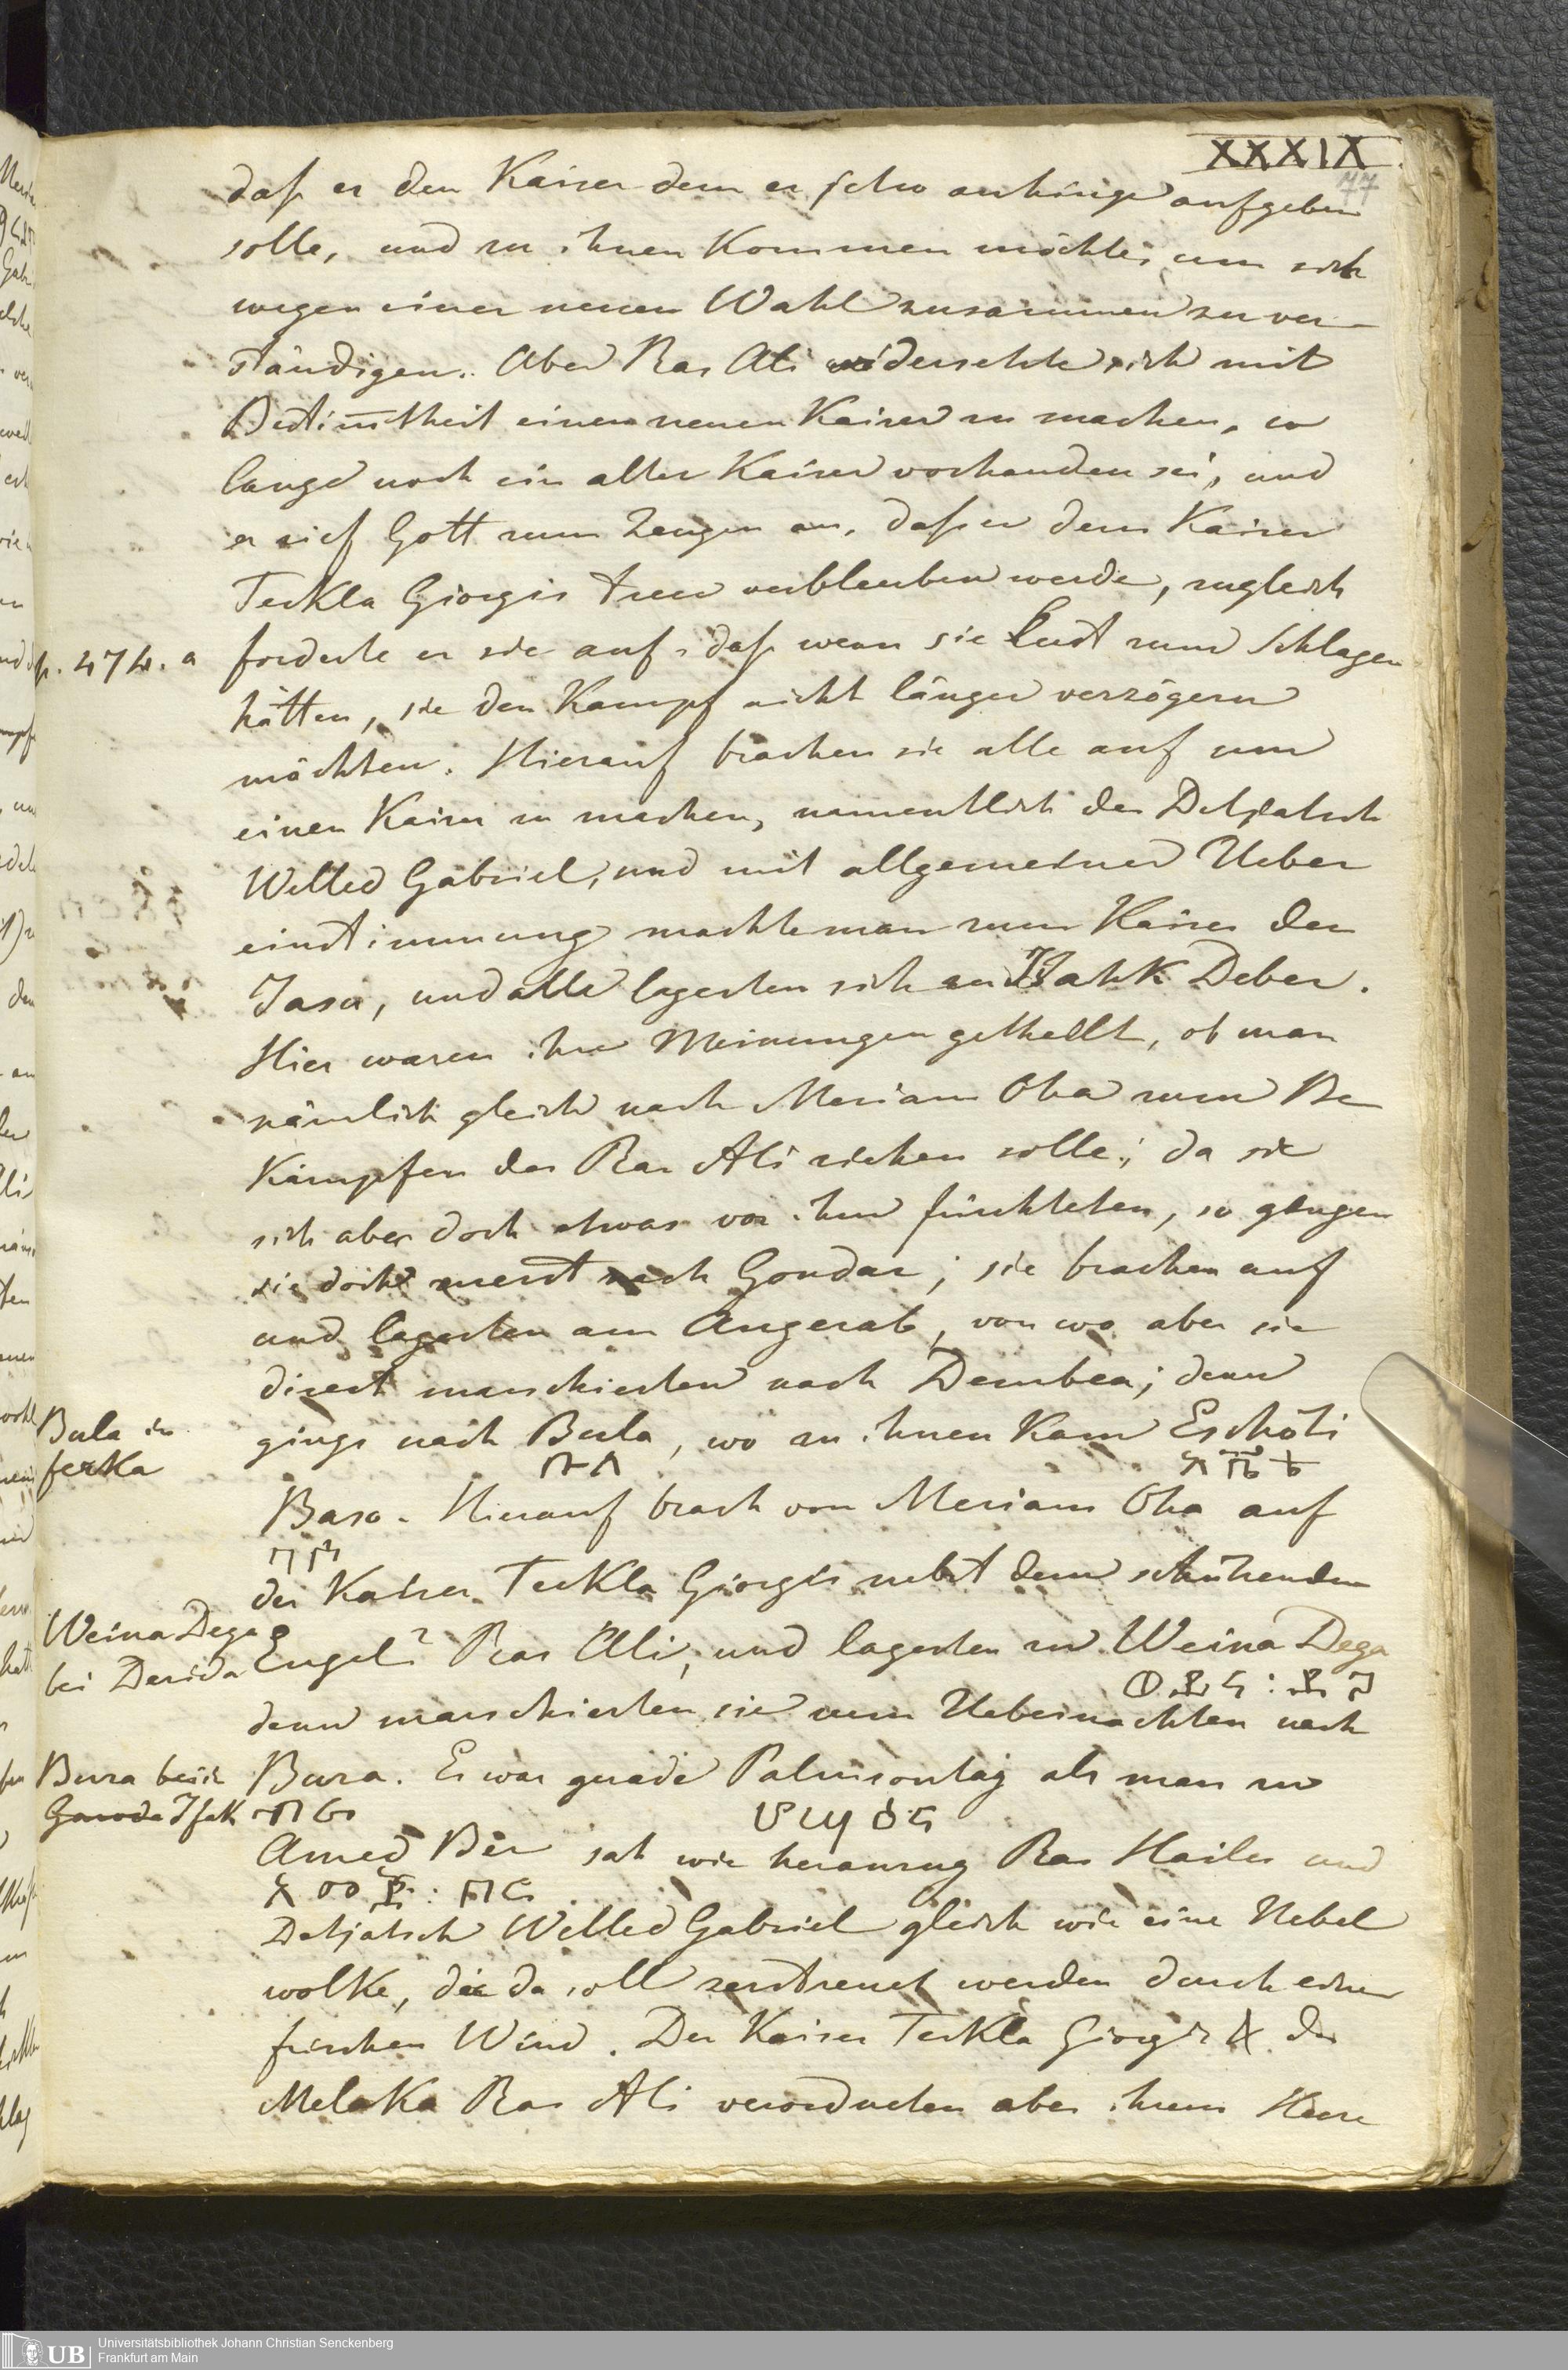 XXXIX
77
daß er den Kaiser dem er schon anhinge aufgeben
solle, und zu ihnen Kommen möchte, um sich
wegen einer neuen Wahl zusammen zu ver-
ständigen. Aber Ras Ali widersetzte sich mit
Bestim̅theit einen neuen Kaiser zu machen, so
lange noch ein alter Kaiser vorhanden sei, und
er rief Gott zum Zeugen an, daß er dem Kaiser
Teckla Giorgis treu verbleiben werde, zugleich
p. 474. a
forderte er sie auf, daß wenn sie Lust zum Schlagen
hätten, sie den Kampf nicht länger verzögern
möchten. Hierauf brachen sie alle auf um
einen Kaiser zu machen, namentlich der Detjatsch
Welled Gabriel, und mit allgemeiner Ueber
einstimmung machte man zum Kaiser den
Jasu, und alle lagerten sich zu Isahk Deber.
Hier waren ihre Meinungen getheilt, ob man
nämlich gleich nach Meriam Oha zum Be
Kämpfen des Ras Ali ziehen solle; da sie
sich aber doch etwas vor ihm fürchteten, so gingen
sie doch zuerst nach Gondar; sie brachen auf
und lagerten am Angerab, von wo aber sie
direct marschierten nach Dembea; denn
Bula in
ferka
gings nach Bula, wo zu ihnen Kam Eschöti
ቡላ እሼቴ
Baso. Hierauf brach von Meriam Oha auf
ባሶ
der Kaiser Teckla Giorgis nebst dem schützenden
Weina Dega
bei Derida
Engel? Ras Ali, und lagerten zu Weina Dega
ወይና፡ደጋ
denn marschierten sie zum Uebernachten nach
Bura beÿ
Ganoda Ifak
Bura. Es war gerade Palmsontag als man zu
ቡራ ሆሣዕና
Amed Bër sah wie heranzug Ras Hailes und
አመድ፡በር
Detjatsch Welled Gabriel gleich wie eine Nebel
wolke, die da soll zerstreuet werden durch einen
frischen Wind. Der Kaiser Teckla Giorgis & der
Melaka Ras Ali verordneten aber ihrem Heere
UB
Universitätsbibliothek Johann Christian Senckenberg
Frankfurt am Main